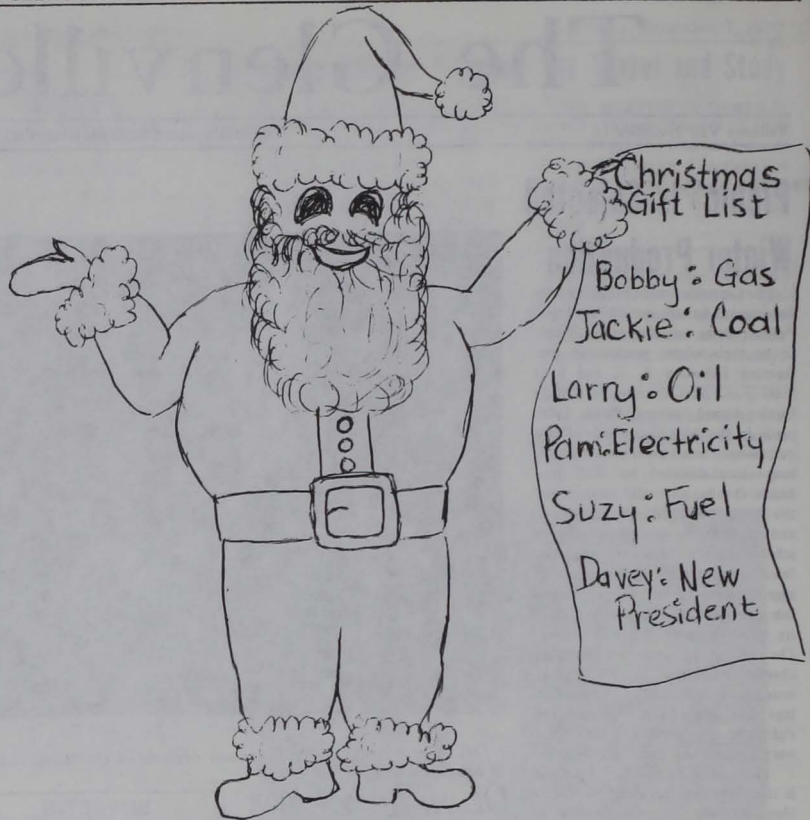 Christmas
Gift List
Bobby: Gas
Jackie: Coal
Larry: Oil
Pam: Electricity
Suzy: Fuel
Davey: New
President